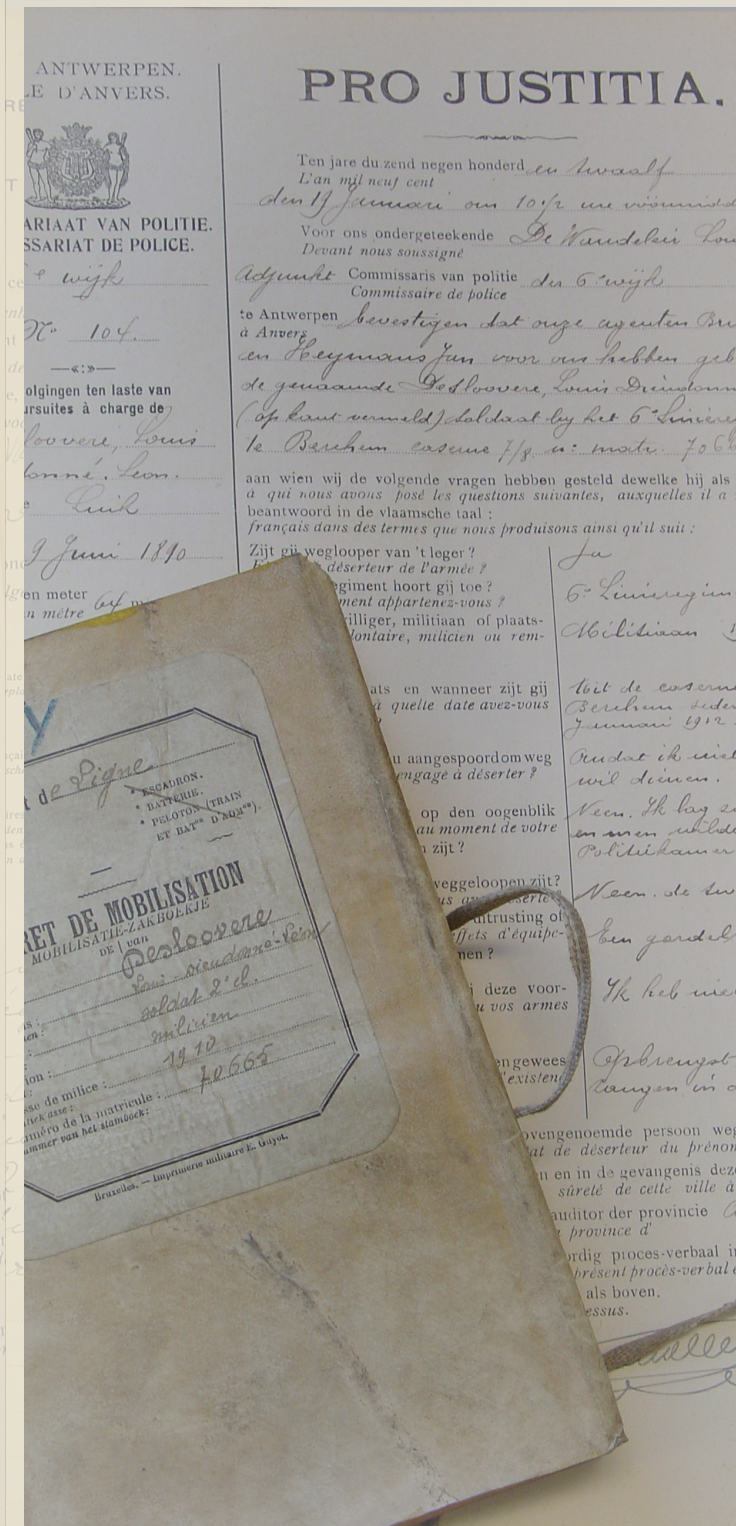 ANTWERPEN.
LE D'ANVERS.
ARIAAT VAN POLITIE.
SSARIAT DE POLICE.
e wijk
No 104.
olgingen ten laste van
ursuites à charge de
loovere, Louis
donné. Leon.
Luik
9 Juni 1890
en meter
n mètre 64 m
PRO JUSTITIA.
Ten jare du zend negen honderd en twaalf
L'an mil neuf cent
den 19 Januari om 10 1/2 ure voormidd
Voor ons ondergeteekende De Wandeleir Lou
Devant nous soussigné
Adjunkt Commissaris van politie der 6e wijk
Commissaire de police
te Antwerpen bevestigen dat onze agenten Bru
à Anvers
en Heymans Jan voor ons hebben geb
de genaamde Desloovere, Louis Dieudonn
(op kant vermeld) soldaat bij het 6e Linier
te Berchem caserne 7/8 n: matr. 7066
aan wien wij de volgende vragen hebben gesteld dewelke hij als
à qui nous avons posé les questions suivantes, auxquelles il a
beantwoord in de vlaamsche taal :
français dans des termes que nous produisons ainsi qu'il suit :
Zijt gij weglooper van 't leger ? Ja
déserteur de l'armée ?
egiment hoort gij toe ? 6e Linieregim
ment appartenez-vous ?
illiger, militiaan of plaats- Militiaan
lontaire, milicien ou rem-
ats en wanneer zijt gij Uit de caserne
à quelle date avez-vous Berchem seder
Januari 1912.
u aangespoord om weg Omdat ik niet
engagé à déserter ? wil dienen.
op den oogenblik Neen. Ik lag
au moment de votre en men wilde
zijt ? Politiekamer
weggeloopen zijt? Neen. de
uitrusting of Een gordel
ffets d'équipe-
nen ?
deze voor- Ik heb nie
u vos armes
en gewees Opbrengst
'existen
ovengenoemde persoon weg
at de déserteur du prénom
n en in de gevangenis deze
sûreté de cette ville à
auditor der provincie
province d'
ordig proces-verbaal in
présent procès-verbal
als boven.
essus.
de Ligne
* ESCADRON.
* BATTERIE.
* PELOTON (TRAIN
ET BATons D'ADMon).
RET DE MOBILISATION
MOBILISATIE-ZAKBOEKJE
DE | van
Desloovere
Louis-Dieudonné-Léon
soldat 2e cl.
milicien
ion :
sse de milice : 1910
uméro de la matricule : 70665
ummer van het stamboek:
Bruxelles. — Imprimerie militaire E. Guyot.